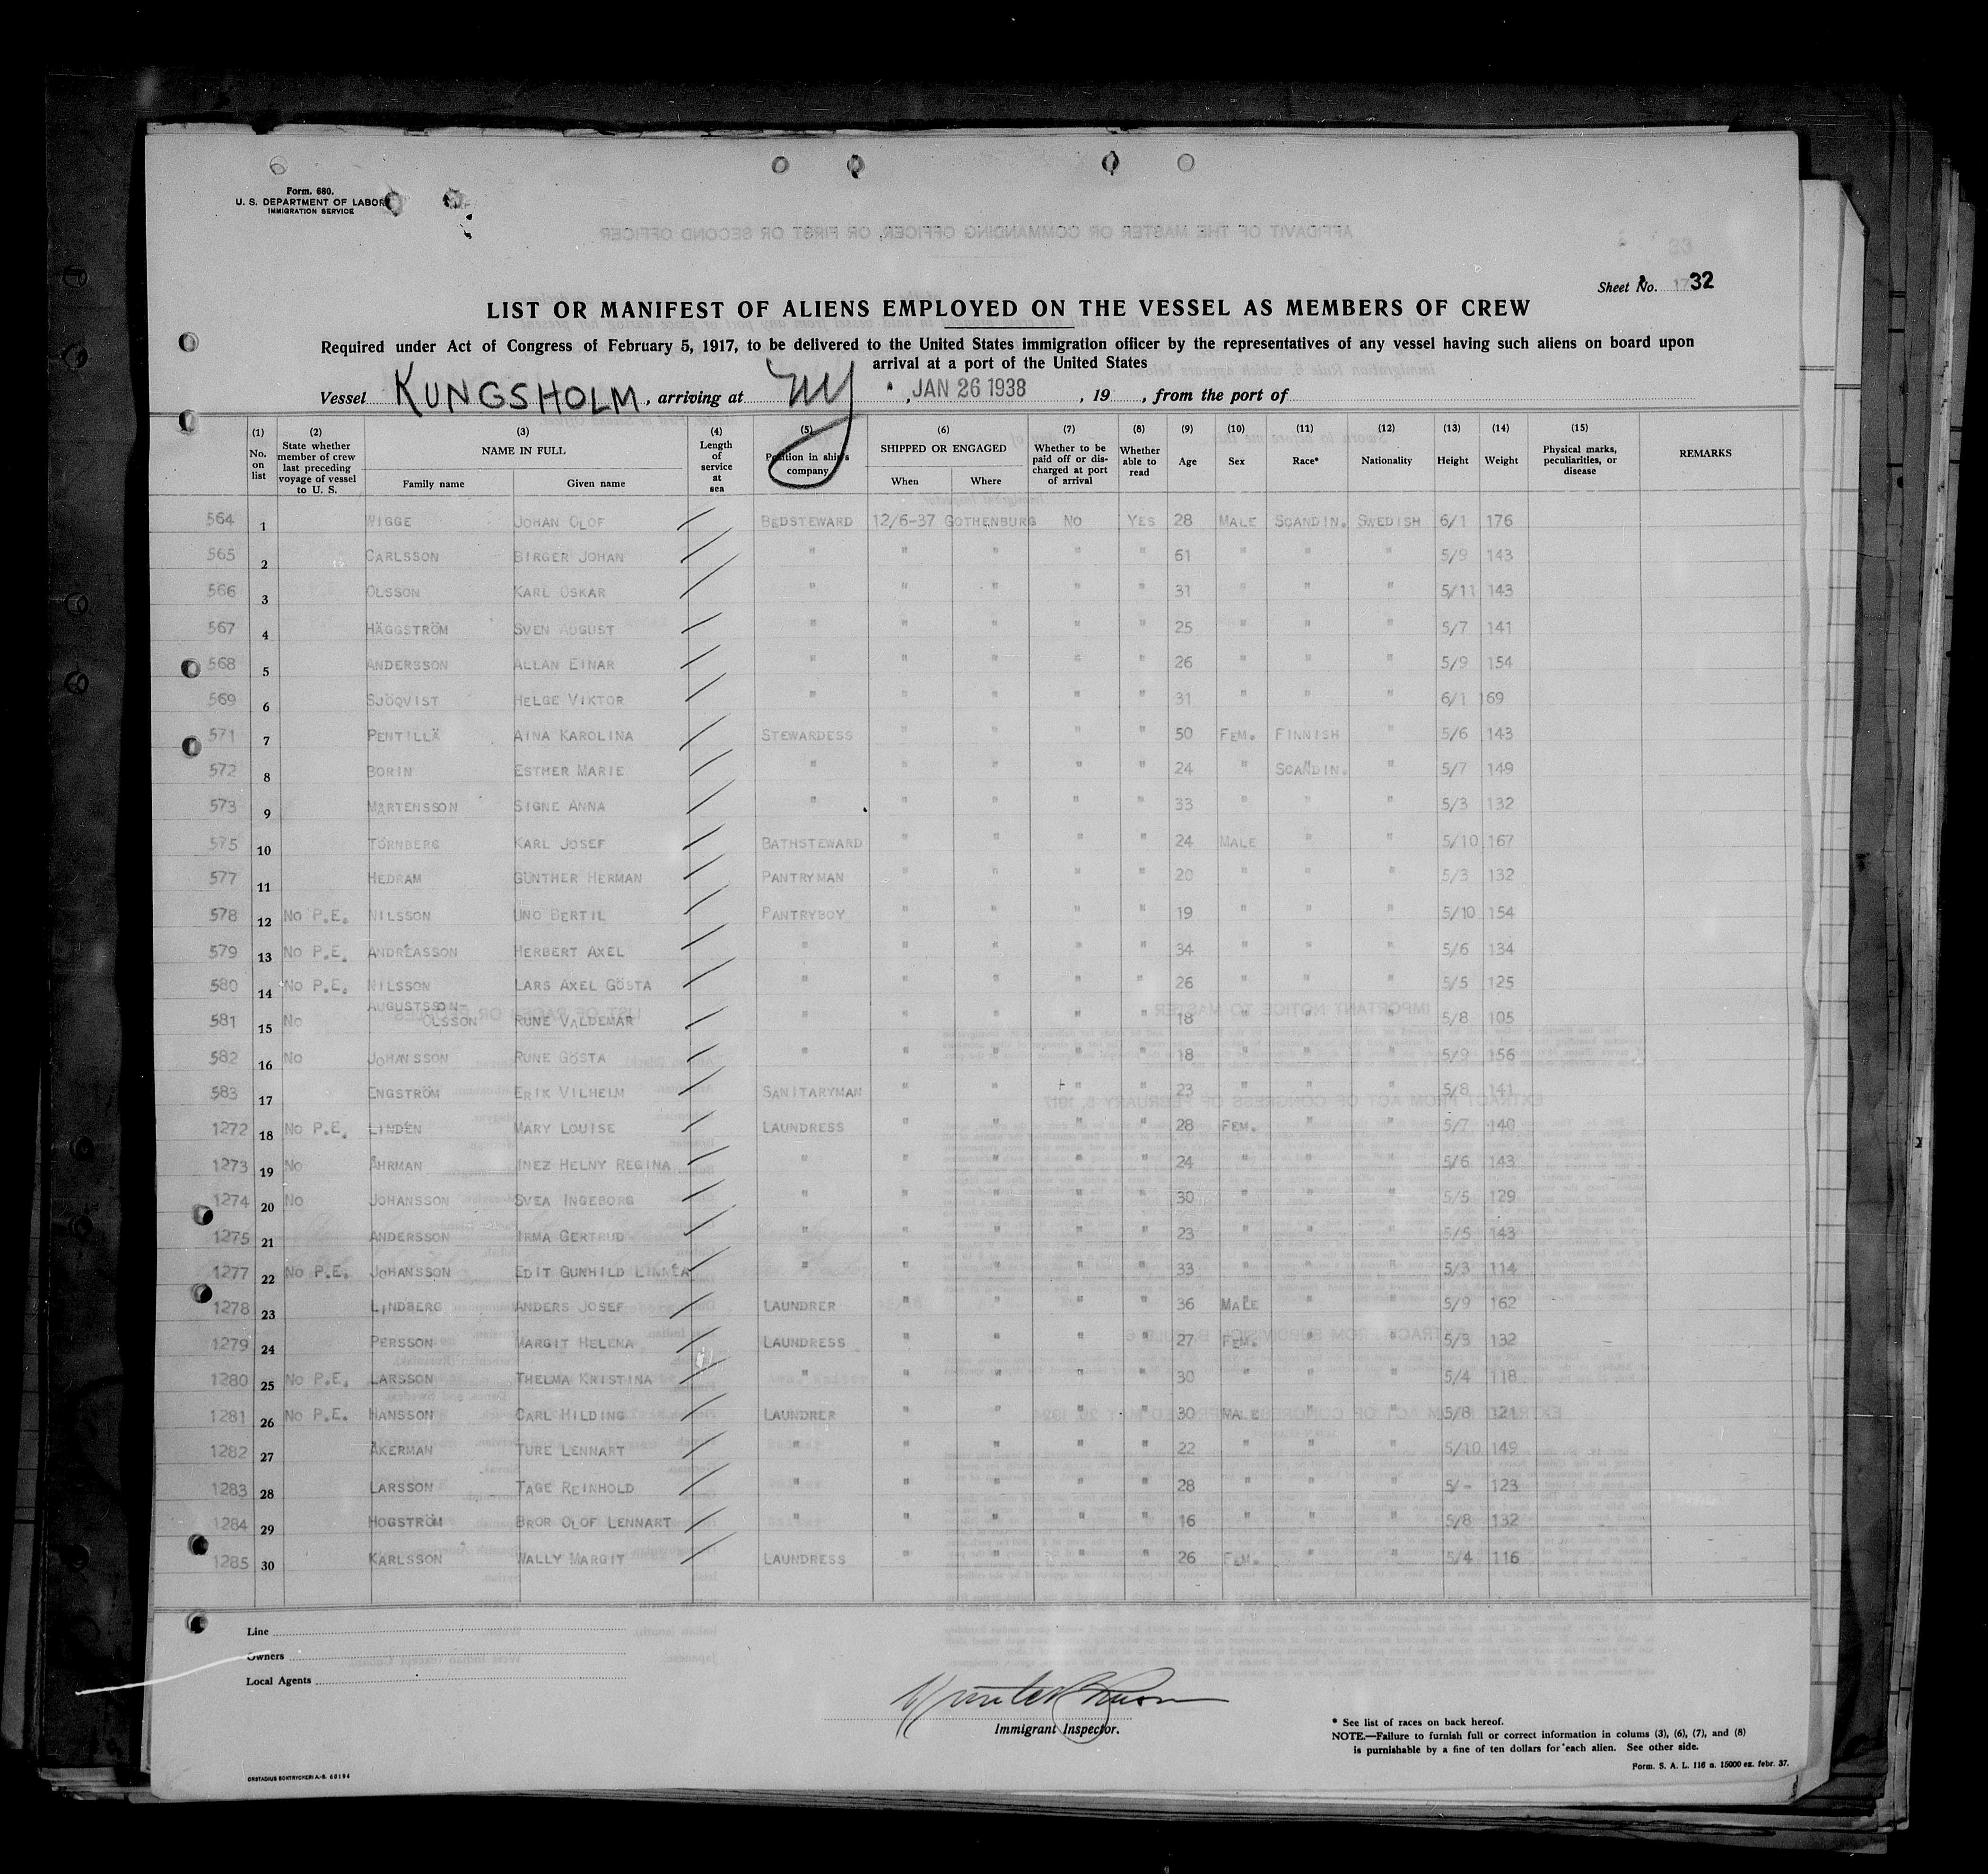 Form. 680.
U. S. DEPARTMENT OF LABOR
IMMIGRATION SERVICE
AFFIDAVIT OF THE MASTER OR COMMANDING OFFICER, OR FIRST OR SECOND OFFICER
33
Sheet No. 32
LIST OR MANIFEST OF ALIENS EMPLOYED ON THE VESSEL AS MEMBERS OF CREW
Required under Act of Congress of February 5, 1917, to be delivered to the United States immigration officer by the representatives of any vessel having such aliens on board upon
arrival at a port of the United States
Vessel KUNGSHOLM, arriving at NY, JAN 26 1938, 19 , from the port of
(1) No. on list (2) State whether member of crew last preceding voyage of vessel to U. S. (3) NAME IN FULL Family name Given name (4) Length of service at sea (5) Position in ship's company (6) SHIPPED OR ENGAGED When Where (7) Whether to be paid off or discharged at port of arrival (8) Whether able to read (9) Age (10) Sex (11) Race* (12) Nationality (13) Height (14) Weight (15) Physical marks, peculiarities, or disease REMARKS
564 1 WIGGE JOHAN OLOF BEDSTEWARD 12/6-37 GOTHENBURG NO YES 28 MALE SCANDIN. SWEDISH 6/1 176
565 2 CARLSSON BIRGER JOHAN " " " " " 61 " " " 5/9 143
566 3 OLSSON KARL OSKAR " " " " " 31 " " " 5/11 143
567 4 HÄGGSTRÖM SVEN AUGUST " " " " " 25 " " " 5/7 141
568 5 ANDERSSON ALLAN EINAR " " " " " 26 " " " 5/9 154
569 6 SJÖQVIST HELGE VIKTOR " " " " " 31 " " " 6/1 169
571 7 PENTILLÄ AINA KAROLINA STEWARDESS " " " " 50 FEM. FINNISH " 5/6 143
572 8 BORIN ESTHER MARIE " " " " " 24 " SCANDIN. " 5/7 149
573 9 MARTENSSON SIGNE ANNA " " " " " 33 " " " 5/3 132
575 10 TÖRNBERG KARL JOSEF BATHSTEWARD " " " " 24 MALE " " 5/10 167
577 11 HEDRAM GÜNTHER HERMAN PANTRYMAN " " " " 20 " " " 5/3 132
578 12 NO P.E. NILSSON UNO BERTIL PANTRYBOY " " " " 19 " " " 5/10 154
579 13 NO P.E. ANDREASSON HERBERT AXEL " " " " " 34 " " " 5/6 134
580 14 NO P.E. NILSSON LARS AXEL GÖSTA " " " " " 26 " " " 5/5 125
581 15 NO AUGUSTSSON-OLSSON RUNE VALDEMAR " " " " " 18 " " " 5/8 105
582 16 NO JOHANSSON RUNE GÖSTA " " " " " 18 " " " 5/9 156
583 17 ENGSTRÖM ERIK VILHELM SANITARYMAN " " " " 23 " " " 5/8 141
1272 18 NO P.E. LINDÉN MARY LOUISE LAUNDRESS " " " " 28 FEM. " " 5/7 140
1273 19 NO ÅHRMAN INEZ HELNY REGINA " " " " " 24 " " " 5/6 143
1274 20 NO JOHANSSON SVEA INGEBORG " " " " " 30 " " " 5/5 129
1275 21 ANDERSSON IRMA GERTRUD " " " " " 23 " " " 5/5 143
1277 22 NO P.E. JOHANSSON EDIT GUNHILD LINNÉA " " " " " 33 " " " 5/3 114
1278 23 LINDBERG ANDERS JOSEF LAUNDRER " " " " 36 MALE " " 5/9 162
1279 24 PERSSON MARGIT HELENA LAUNDRESS " " " " 27 FEM. " " 5/3 132
1280 25 NO P.E. LARSSON THELMA KRISTINA " " " " " 30 " " " 5/4 118
1281 26 NO P.E. HANSSON CARL HILDING LAUNDRER " " " " 30 MALE " " 5/8 121
1282 27 ÅKERMAN TURE LENNART " " " " " 22 " " " 5/10 149
1283 28 LARSSON TAGE REINHOLD " " " " " 28 " " " 5/- 123
1284 29 HÖGSTRÖM BROR OLOF LENNART " " " " " 16 " " " 5/8 132
1285 30 KARLSSON WALLY MARGIT LAUNDRESS " " " " 26 FEM. " " 5/4 116
Line
Owners
Local Agents
Immigrant Inspector.
* See list of races on back hereof.
NOTE.—Failure to furnish full or correct information in colums (3), (6), (7), and (8)
is purnishable by a fine of ten dollars for each alien. See other side.
Form. S. A. L. 116 n. 15000 ex. febr. 37.